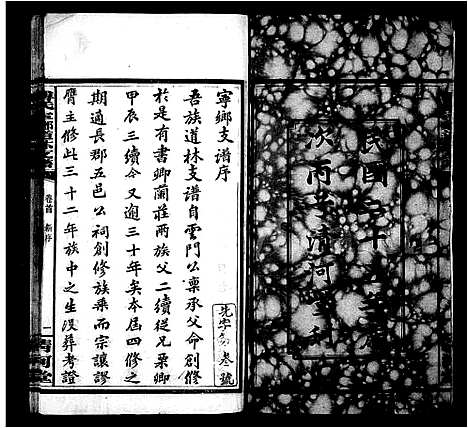 民國三十
次丙子清河堂刊
寧鄉支譜序
吾族道林支譜自雲門公稟承父命創修
於是有書卿蘭莊兩族父二續從兄栗卿
甲辰三續今又逾三十年矣本屆四修之
期適長郡五邑公祠創修族乘而宗讓謬
膺主修此三十二年族中之生沒葬考證
卷首
序
一
清河堂